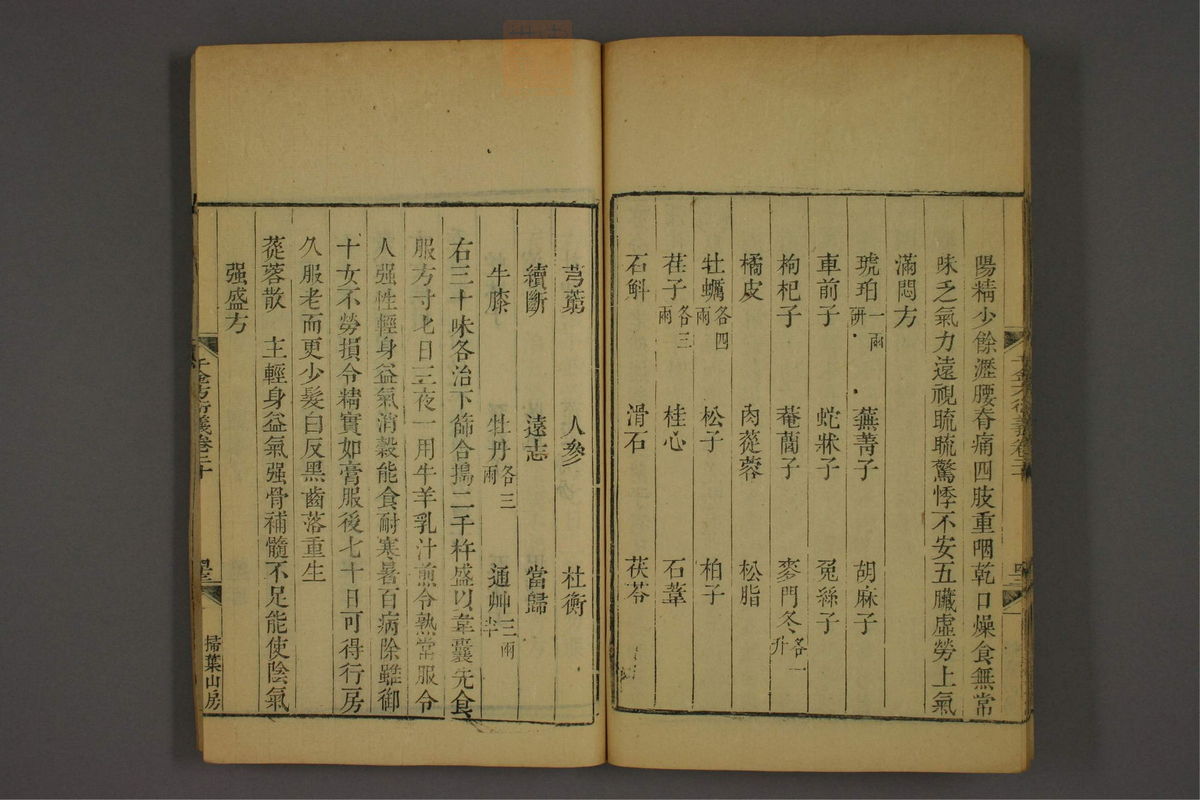 陽精少餘瀝腰脊痛四肢重咽乾口燥食無常
味乏氣力遠視䀮䀮驚悸不安五臟虛勞上氣
滿悶方
琥珀一兩研 蕪菁子 胡麻子
車前子 蛇牀子 兔絲子
枸杞子 菴䕡子 麥門冬各一升
橘皮 肉蓯蓉 松脂
牡蠣各四兩 松子 柏子
荏子各三兩 桂心 石葦
石斛 滑石 茯苓
芎藭 人參 杜衡
續斷 遠志 當歸
牛膝 牡丹各三兩 通艸三兩半
右三十味各治下篩合搗二千杵盛以韋囊先食
服方寸匕日三夜一用牛羊乳汁煎令熟常服令
人强性輕身益氣消穀能食耐寒暑百病除雖御
十女不勞損令精實如膏服後七十日可得行房
久服老而更少髮白反黑齒落重生
蓯蓉散 主輕身益氣强骨補髓不足能使陰氣
强盛方
千金方衍義卷二十
掃葉山房